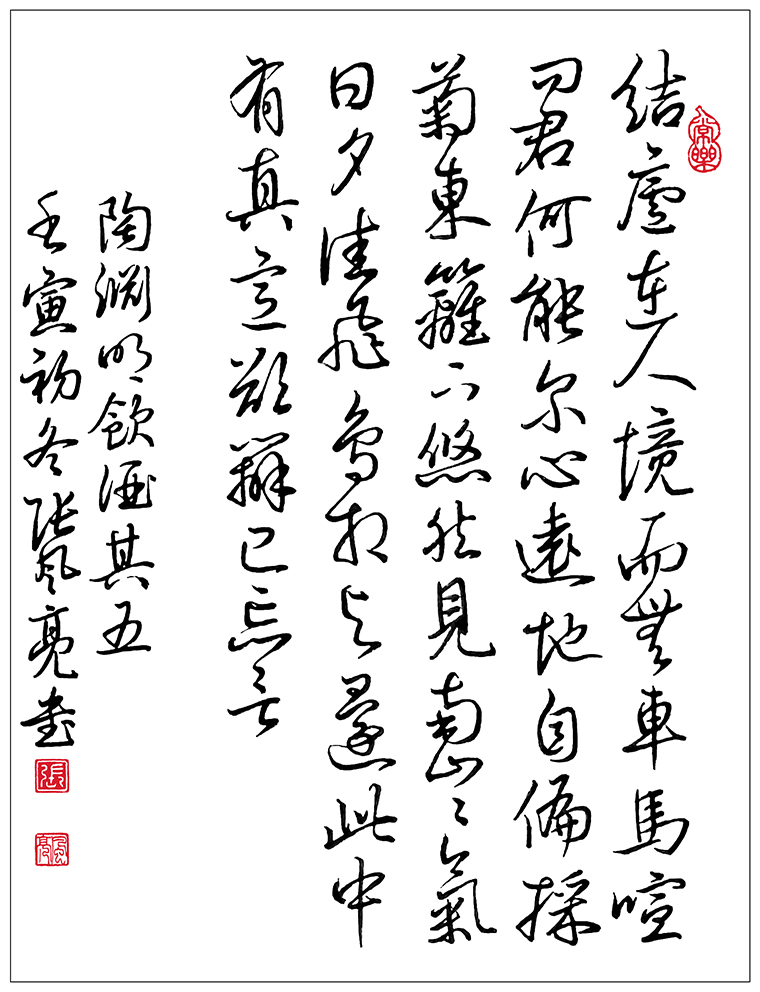 常樂
結廬在人境而無車馬喧
問君何能尔心遠地自偏採
菊東籬下悠然見南山〻氣
日夕佳飛鳥相与還此中
有真意欲辯已忘言
陶淵明飲酒其五
壬寅初冬張風亮書
張
風亮